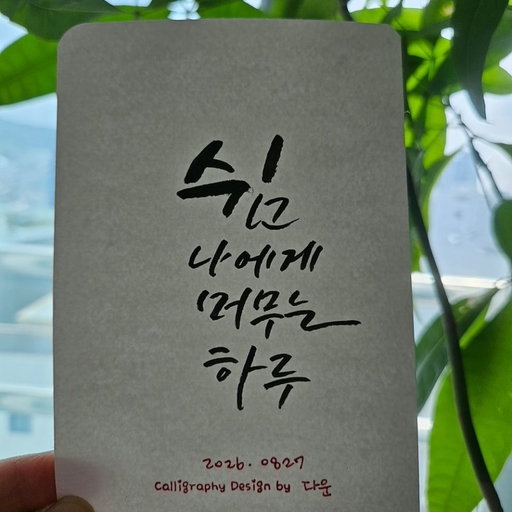 쉼
나에게
머무는
하루
2026. 0827
Calligraphy Design by 다운